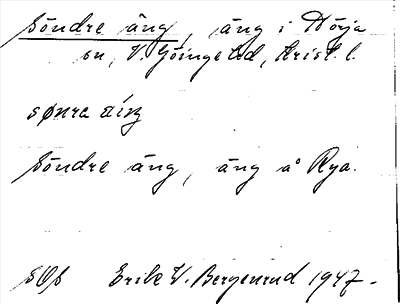 Söndre äng, äng i Nörja
sn, V. Göinge hd, Krist. l.
sønra äng
Söndre äng, äng å Rya.
SOf Erik W. Bergenrud 1947.